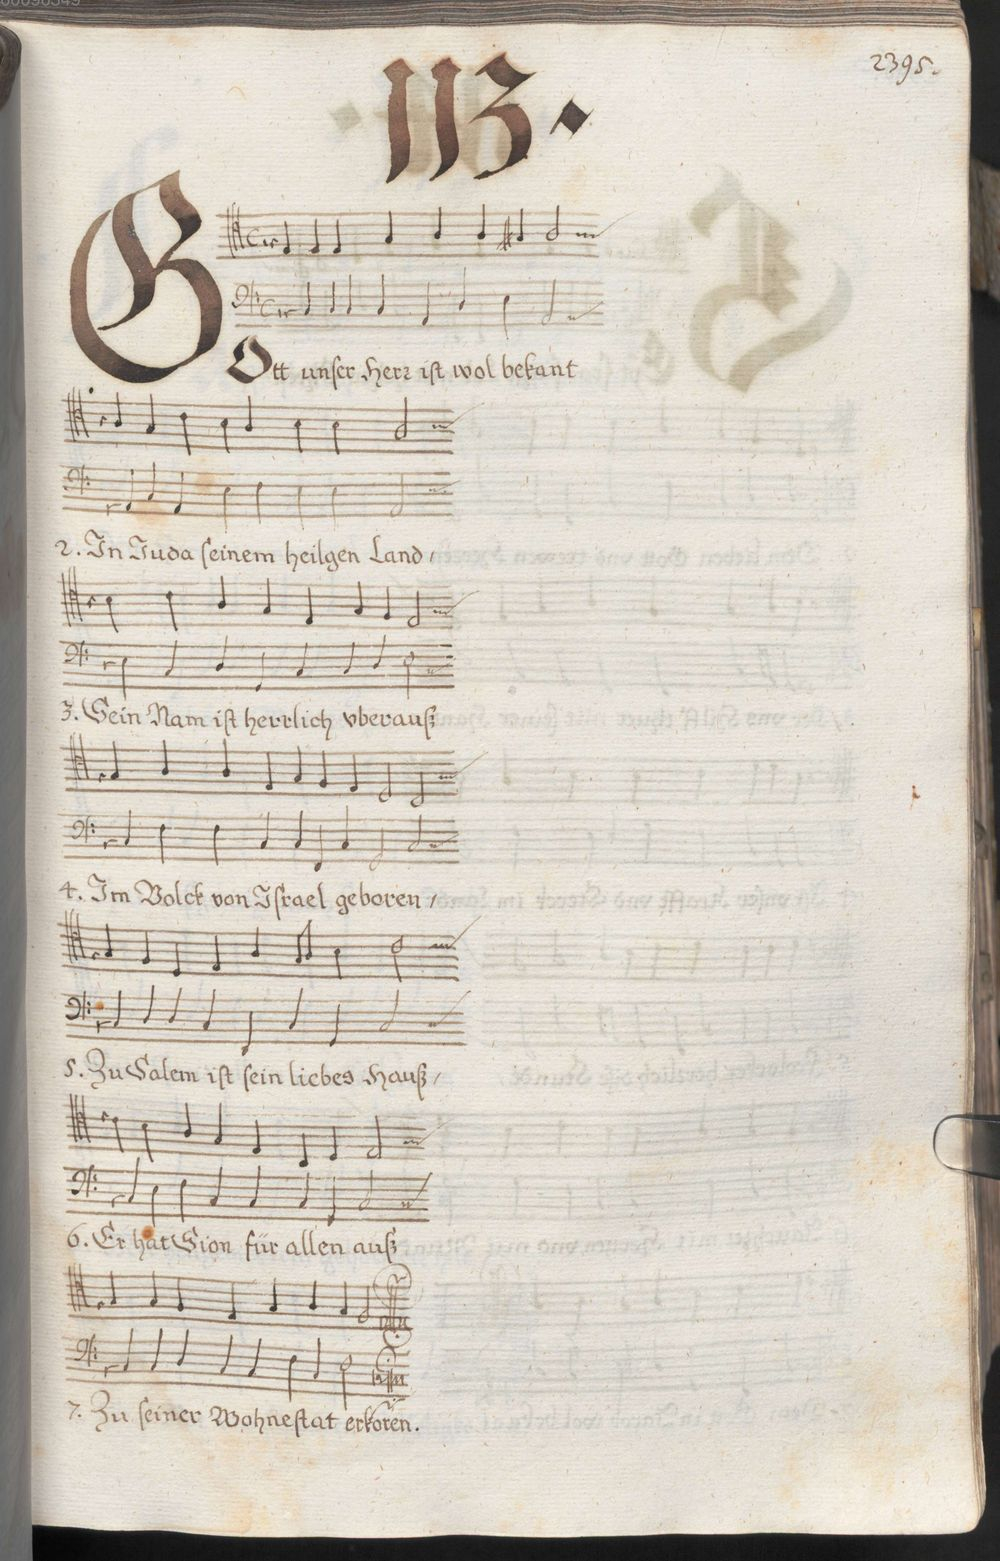 2395.
· 113 ·
GOtt unser Herr ist wol bekant
2. In Juda seinem heilgen Land /
3. Sein Nam ist herrlich vberauß
4. Im Volck von Israel geboren /
5. Zu Salem ist sein liebes Hauß /
6. Er hat Sion für allen auß
7. Zu seiner Wohnestat erkoren.